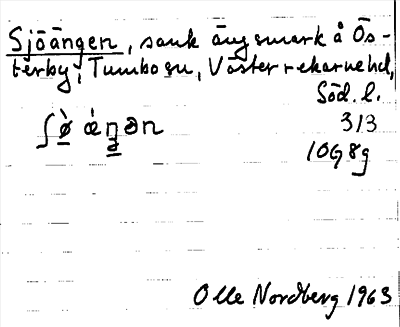 Sjöängen, sank ängsmark å Ös-
terby, Tumbo sn, Västerrekarne hd,
Söd. l.
ʃø̀ ǽŋən
313
10G 8g
Olle Nordberg 1963